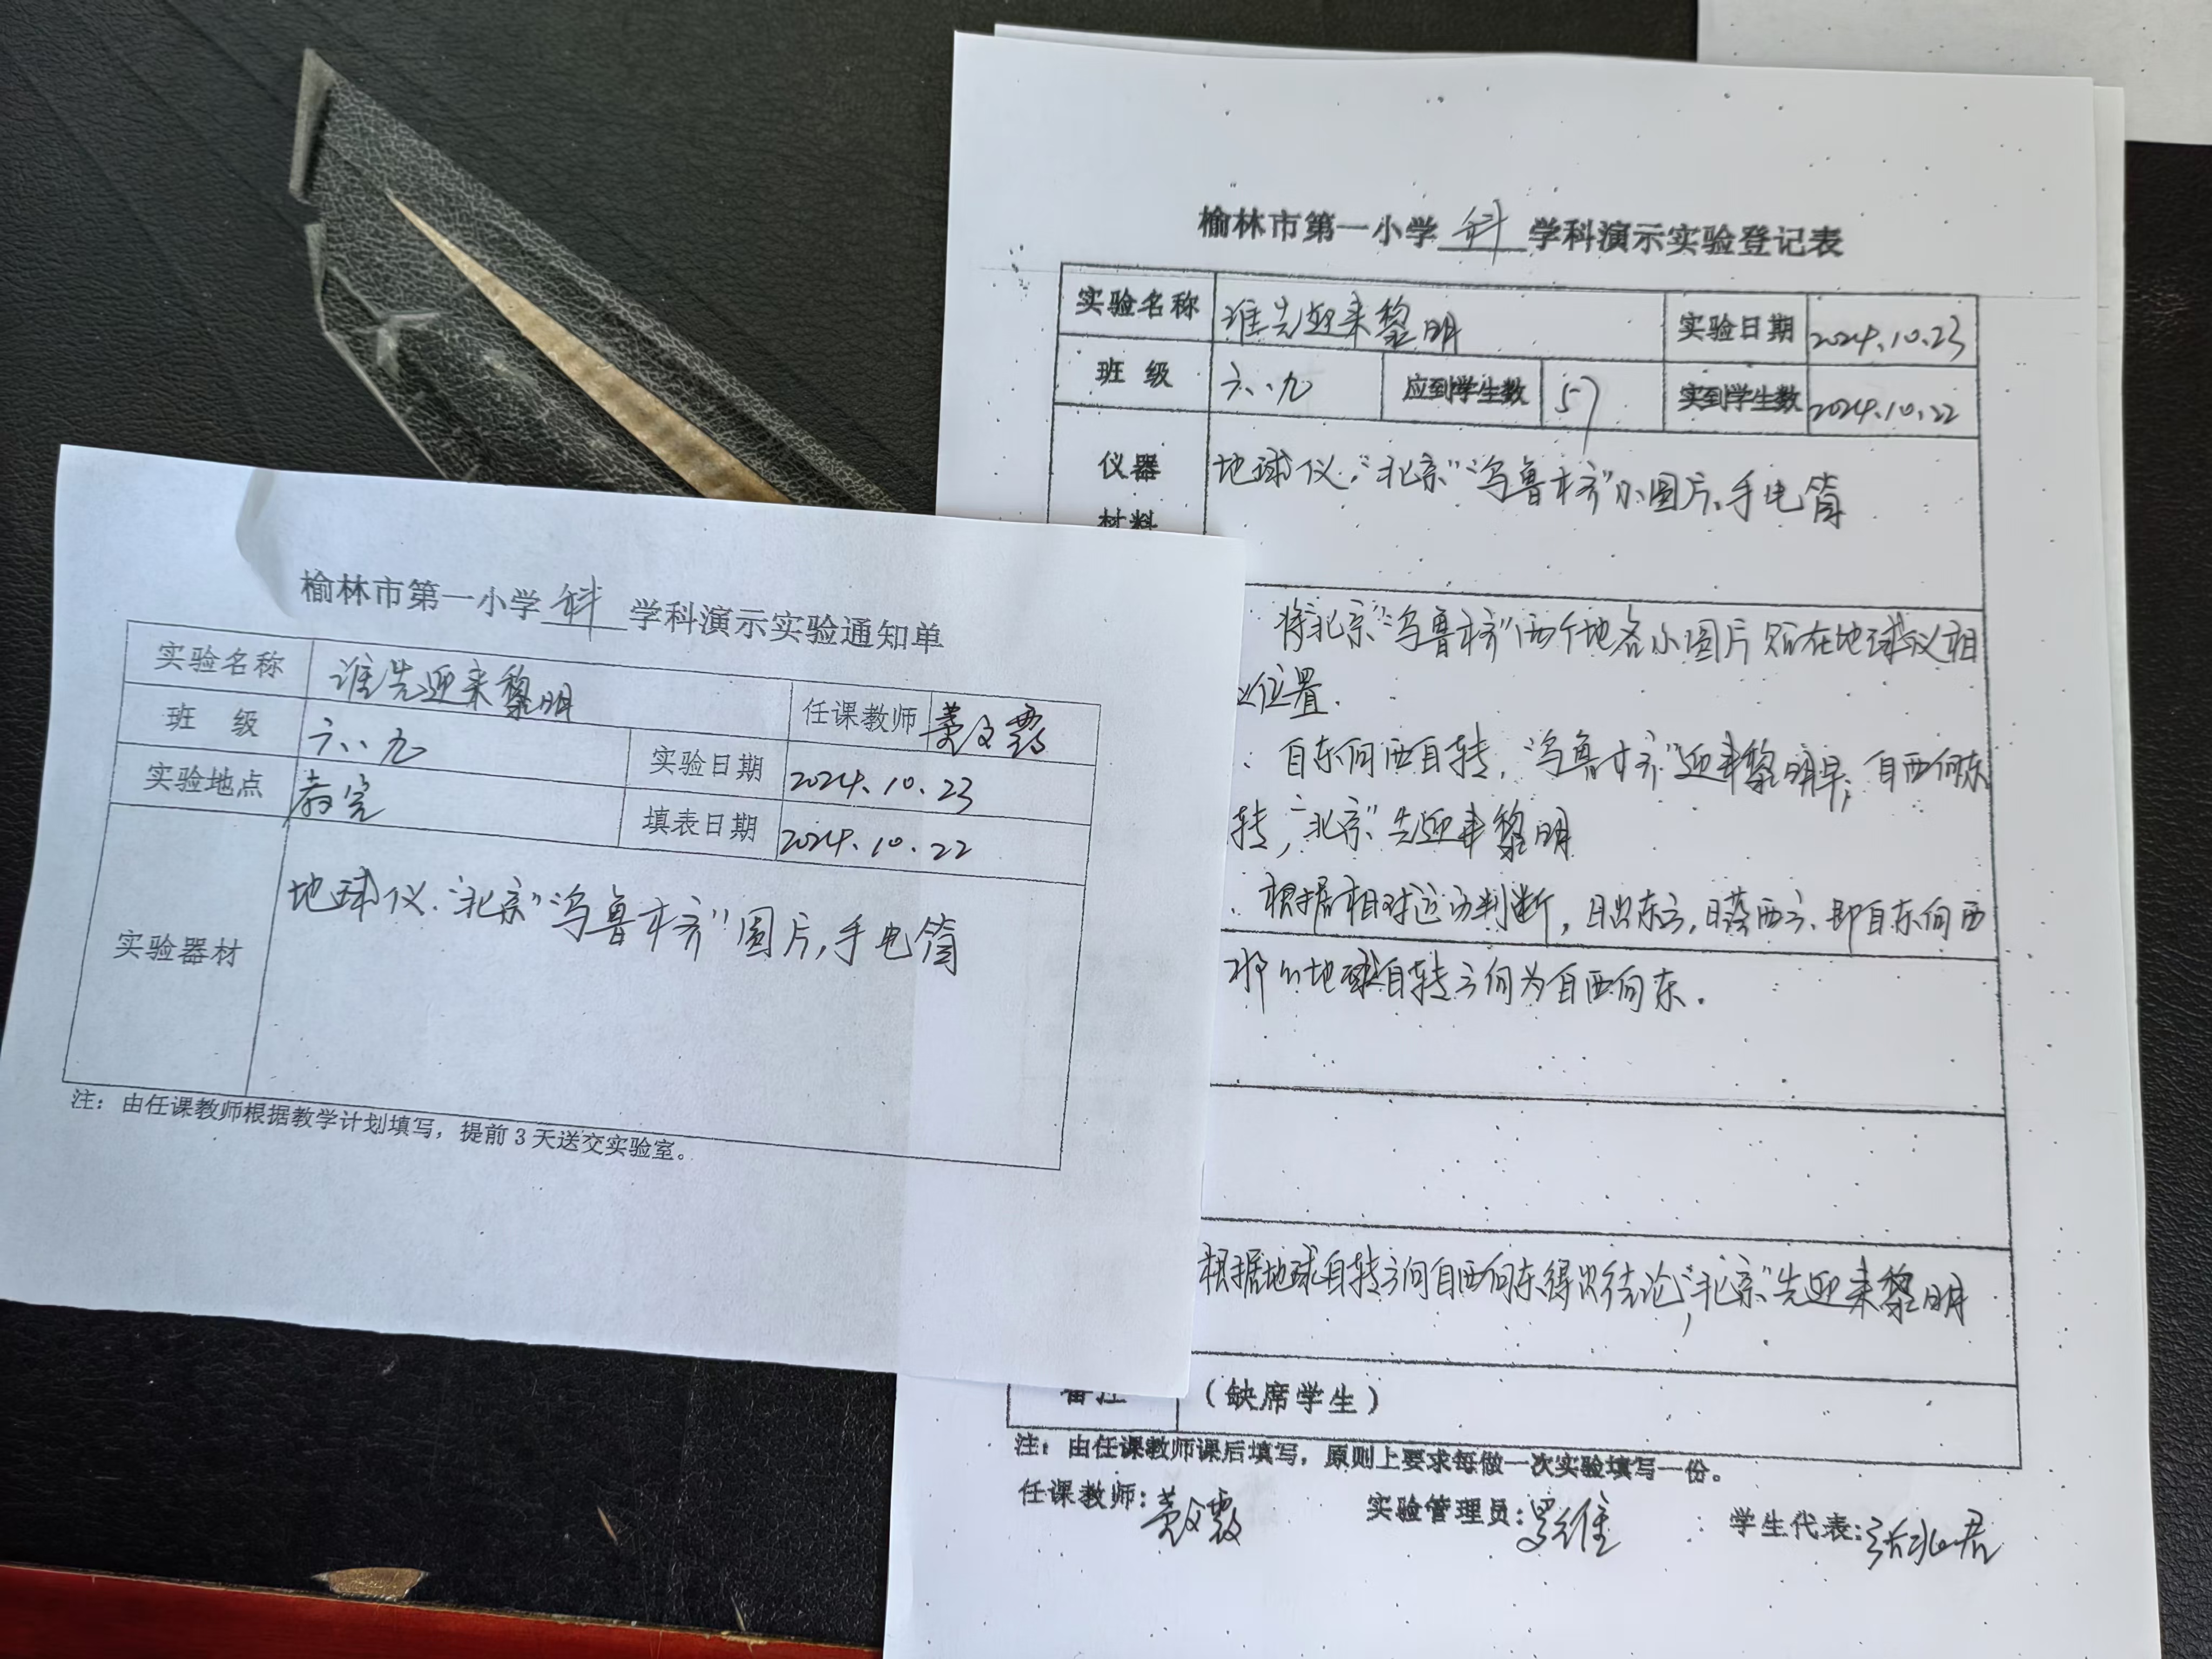 榆林市第一小学 科 学科演示实验通知单
实验名称 谁先迎来黎明 任课教师
班 级 六、九 实验日期 2024.10.23
实验地点 教室 填表日期 2024.10.22
实验器材 地球仪."北京""乌鲁木齐"图片,手电筒
注：由任课教师根据教学计划填写，提前 3 天送交实验室。
榆林市第一小学 科 学科演示实验登记表
实验名称 谁先迎来黎明 实验日期 2024.10.23
班 级 六、九 应到学生数 57 实到学生数 2024.10.22
仪器 地球仪."北京""乌鲁木齐"小图片,手电筒
材料
将北京"乌鲁木齐"两个地名小图片 在地球仪相
位置.
自东向西自转,"乌鲁木齐"迎来黎明早;自西向东
转,"北京"先迎来黎明
根据相对运动判断,日出东方,日落西方.即自东向西
那么地球自转方向为自西向东.
根据地球自转方向自西向东得出结论,"北京"先迎来黎明
备注 （缺席学生）
注：由任课教师课后填写，原则上要求每做一次实验填写一份。
任课教师: 实验管理员: 学生代表: